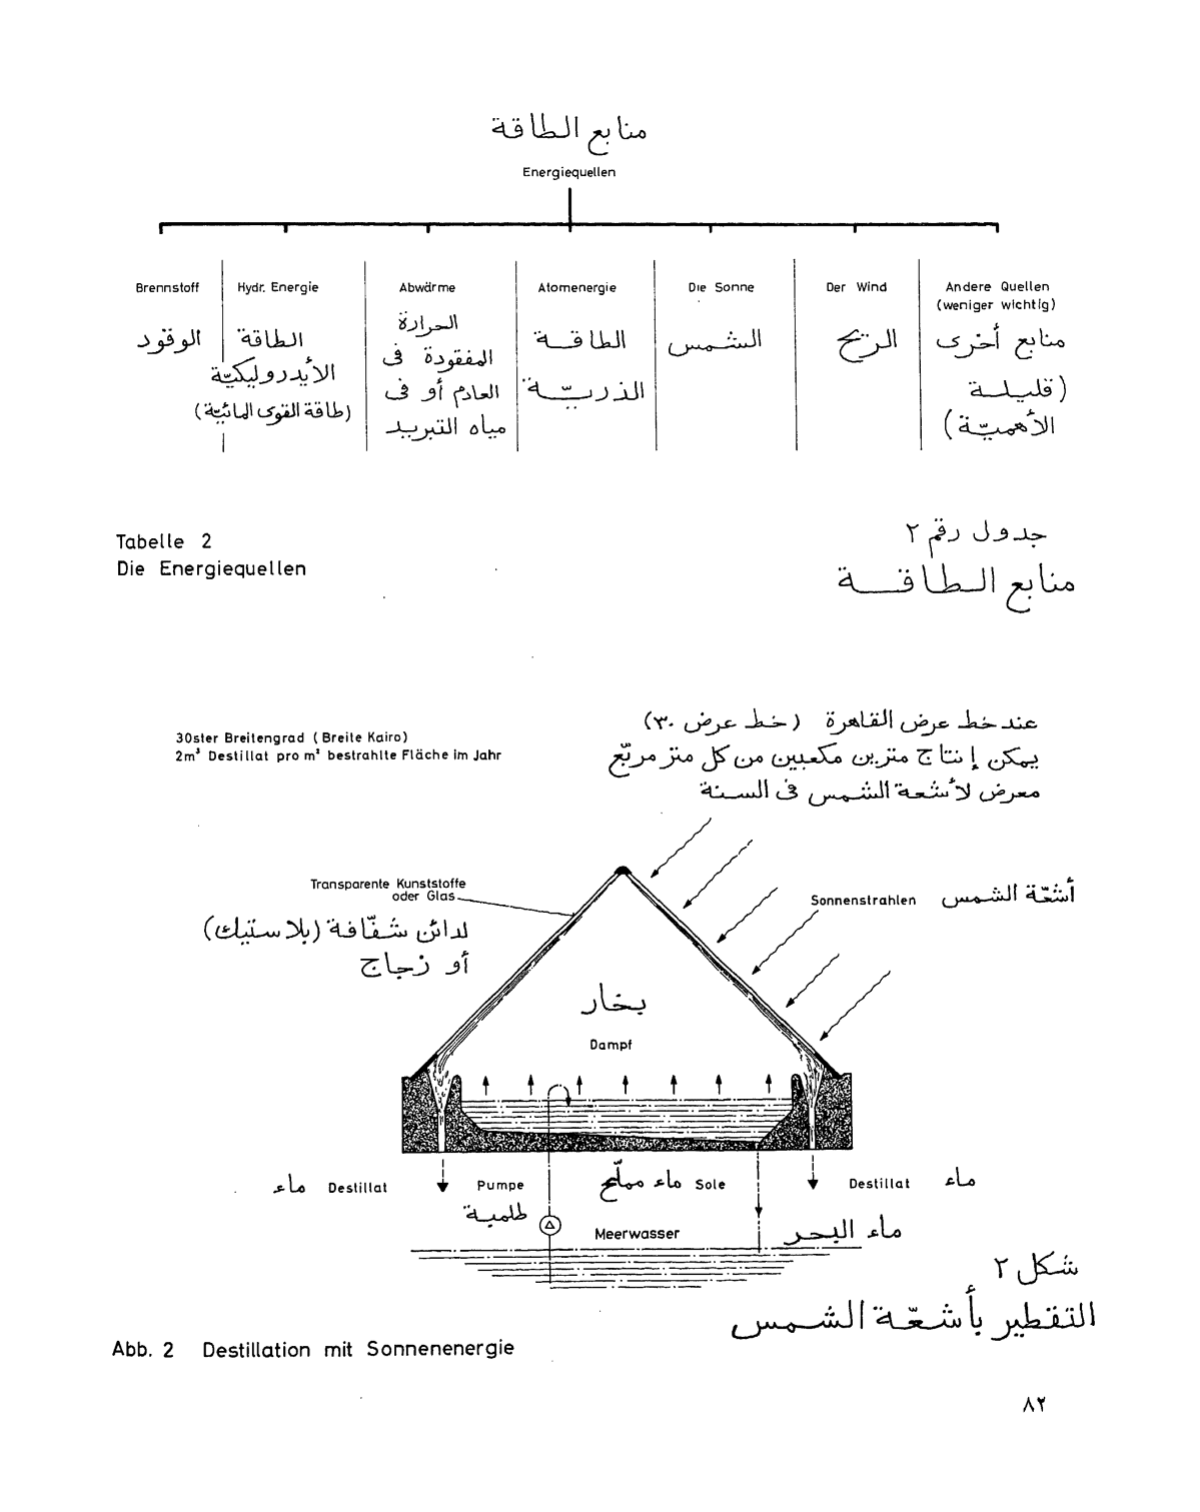 منابع الطاقة
Energiequellen
Brennstoff
الوقود
Hydr. Energie
الطاقة
الأيدروليكيّة
(طاقة القوى المائيّة)
Abwärme
الحرارة
المفقودة فى
العادم أو فى
مياه التبريد
Atomenergie
الطاقة
الذريّة
Die Sonne
الشمس
Der Wind
الريح
Andere Quellen
(weniger wichtig)
منابع أخرى
(قليلة
الأهميّة)
Tabelle 2
Die Energiequellen
جدول رقم ٢
منابع الطاقة
30ster Breitengrad (Breite Kairo)
2m³ Destillat pro m² bestrahlte Fläche im Jahr
عند خط عرض القاهرة (خط عرض ٣٠)
يمكن إنتاج مترين مكعبين من كل متر مربّع
معرض لأشعة الشمس فى السنة
Transparente Kunststoffe
oder Glas
لدائن شفّافة (بلاستيك)
أو زجاج
Sonnenstrahlen أشعّة الشمس
بخار
Dampf
ماء Destillat
Pumpe
طلمبة
ماء مملّح Sole
Destillat ماء
Meerwasser ماء البحر
شكل ٢
التقطير بأشعّة الشمس
Abb. 2 Destillation mit Sonnenenergie
٨٢